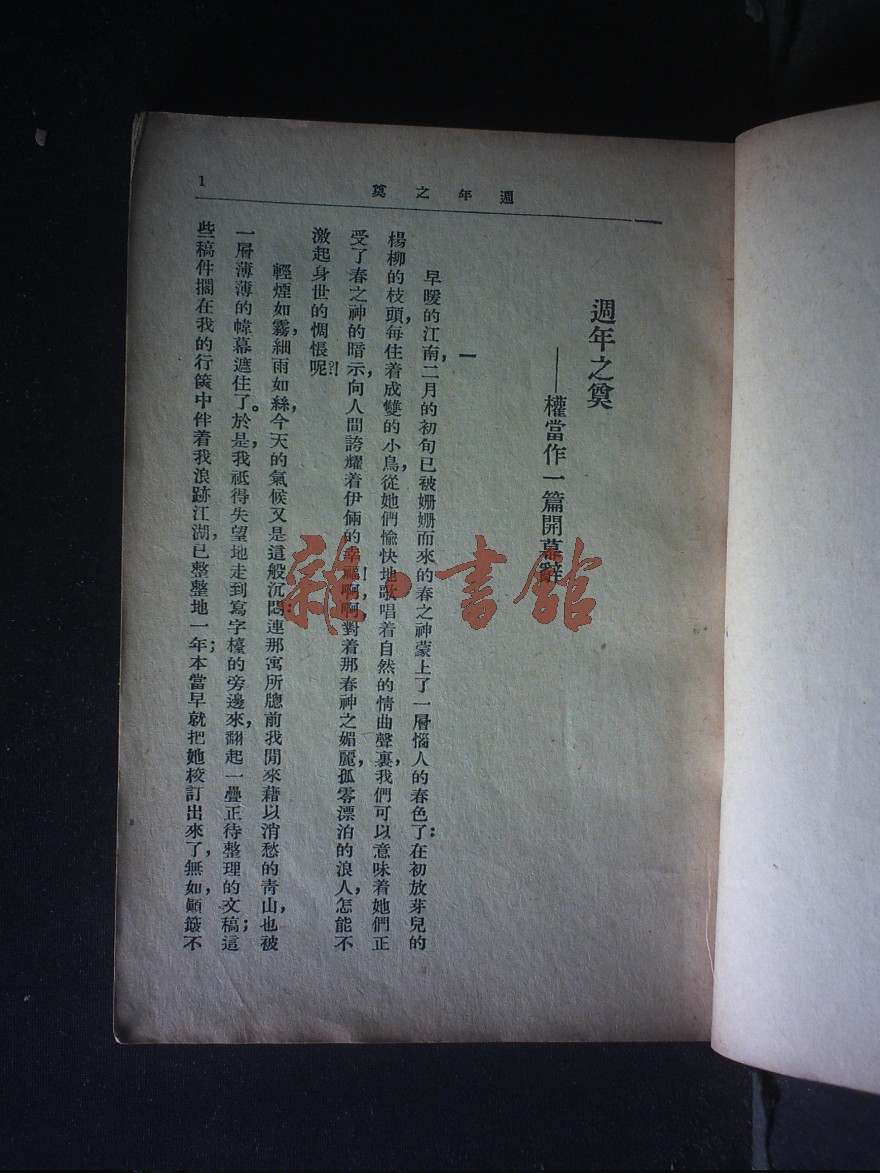 週年之奠
1
週年之奠
——權當作一篇開幕辭
一
早暖的江南,二月的初旬已被姍姍而來的春之神蒙上了一層惱人的春色了:在初放芽兒的
楊柳的枝頭,每住着成雙的小鳥,從她們愉快地歌唱着自然的情曲聲裏,我們可以意味着她們正
受了春之神的暗示,向人間誇耀着伊倆的幸福!啊,啊,對着那春神之媚麗,孤零漂泊的浪人,怎能不
激起身世的惆悵呢?!
輕煙如霧,細雨如絲,今天的氣候又是這般沉悶:連那寓所牕前我閒來藉以消愁的青山,也被
一層薄薄的幃幕遮住了。於是,我祇得失望地走到寫字檯的旁邊來,翻起一疊正待整理的文稿;這
些稿件擱在我的行篋中伴着我浪跡江湖,已整整地一年;本當早就把她校訂出來了,無如,顛簸不
雜·書館